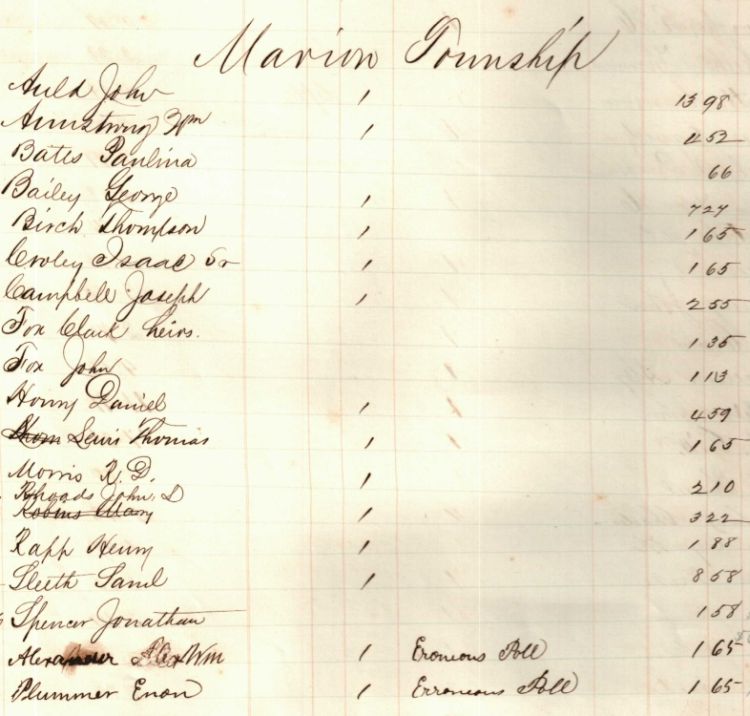 Marion Township
Auld John 1 13 98
Armstrong Wm 1 4 52
Bates Paulina 66
Bailey George 1 7 27
Birch Thompson 1 1 65
Croley Isaac Sr 1 1 65
Campbell Joseph 1 2 55
Fox Clark heirs. 1 35
Fox John 1 13
Henry Daniel 1 4 59
Lewis Thomas 1 1 65
Morris R. D. 1 2 10
Rhoads John D
Robins Mary 1 3 22
Rapp Henry 1 1 88
Sleeth Saml 1 8 58
Spencer Jonathan 1 58
Alexander Wm 1 Eroneous Poll 1 65
Plummer Enon 1 Erroneous Poll 1 65